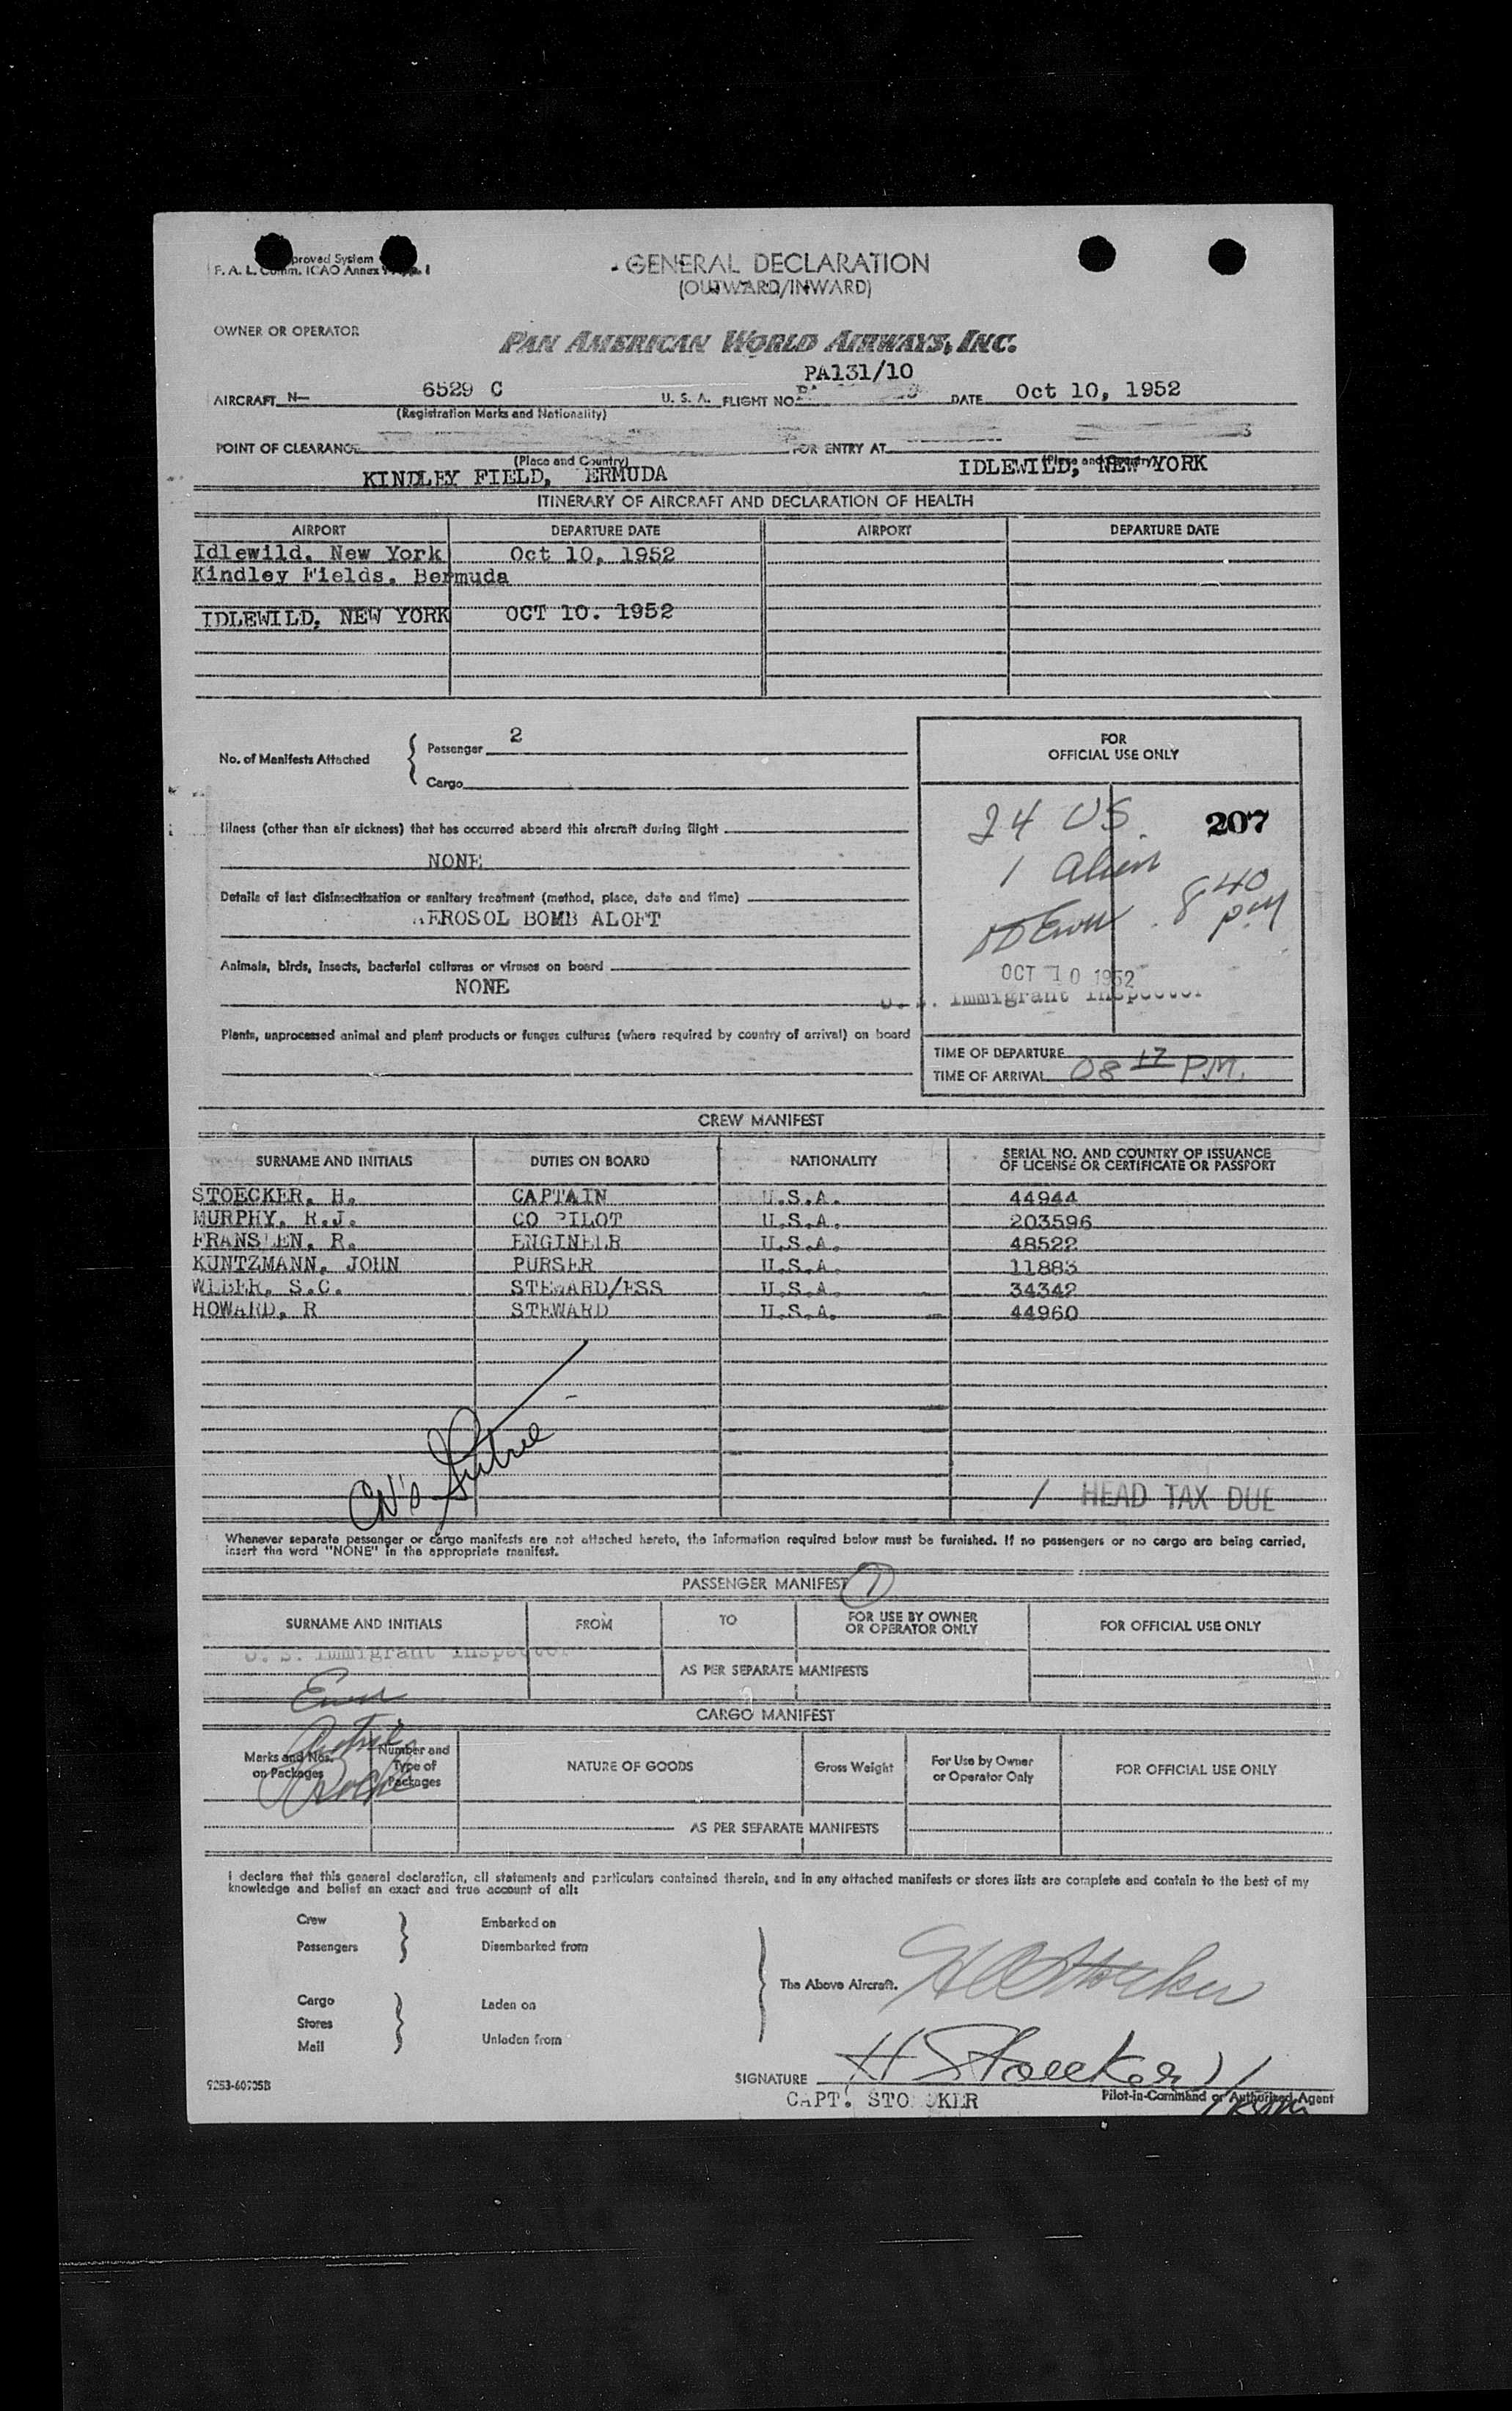 proved System
F. A. L. Comm. ICAO Annex
GENERAL DECLARATION
(OUTWARD/INWARD)
OWNER OR OPERATOR
PAN AMERICAN WORLD AIRWAYS, INC.
PA131/10
AIRCRAFT N— 6529 C U. S. A. FLIGHT NO. DATE Oct 10, 1952
(Registration Marks and Nationality)
POINT OF CLEARANCE FOR ENTRY AT
(Place and Country) (Place and Country)
KINDLEY FIELD, ERMUDA IDLEWILD, NEW YORK
ITINERARY OF AIRCRAFT AND DECLARATION OF HEALTH
AIRPORT DEPARTURE DATE AIRPORT DEPARTURE DATE
Idlewild, New York Oct 10, 1952
Kindley Fields, Bermuda
IDLEWILD, NEW YORK OCT 10. 1952
No. of Manifests Attached
Passenger 2
Cargo
FOR
OFFICIAL USE ONLY
24 US. 207
1 Alien
840
pm
OCT 10 1952
U. S. Immigrant Inspector
Illness (other than air sickness) that has occurred aboard this aircraft during flight
NONE
Details of last disinsectization or sanitary treatment (method, place, date and time)
AEROSOL BOMB ALOFT
Animals, birds, insects, bacterial cultures or viruses on board
NONE
Plants, unprocessed animal and plant products or fungus cultures (where required by country of arrival) on board
TIME OF DEPARTURE
TIME OF ARRIVAL 08 17 P.M.
CREW MANIFEST
SURNAME AND INITIALS DUTIES ON BOARD NATIONALITY SERIAL NO. AND COUNTRY OF ISSUANCE
OF LICENSE OR CERTIFICATE OR PASSPORT
STOECKER, H. CAPTAIN U.S.A. 44944
MURPHY, R.J. CO PILOT U.S.A. 203596
FRANSLEN, R. ENGINEER U.S.A. 48522
KUNTZMANN, JOHN PURSER U.S.A. 11883
WEBER, S.C. STEWARD/ESS U.S.A. 34342
HOWARD, R STEWARD U.S.A. 44960
/ HEAD TAX DUE
Whenever separate passenger or cargo manifests are not attached hereto, the information required below must be furnished. If no passengers or no cargo are being carried,
insert the word "NONE" in the appropriate manifest.
PASSENGER MANIFEST 1
SURNAME AND INITIALS FROM TO FOR USE BY OWNER
OR OPERATOR ONLY FOR OFFICIAL USE ONLY
U. S. Immigrant Inspector
AS PER SEPARATE MANIFESTS
CARGO MANIFEST
Marks and Nos.
on Packages Number and
Type of
Packages NATURE OF GOODS Gross Weight For Use by Owner
or Operator Only FOR OFFICIAL USE ONLY
AS PER SEPARATE MANIFESTS
I declare that this general declaration, all statements and particulars contained therein, and in any attached manifests or stores lists are complete and contain to the best of my
knowledge and belief an exact and true account of all:
Crew Embarked on
Passengers Disembarked from
The Above Aircraft.
Cargo Laden on
Stores
Mail Unladen from
SIGNATURE H Stoecker
9253-60905B
CAPT. STO CKER Pilot-in-Command or Authorized Agent